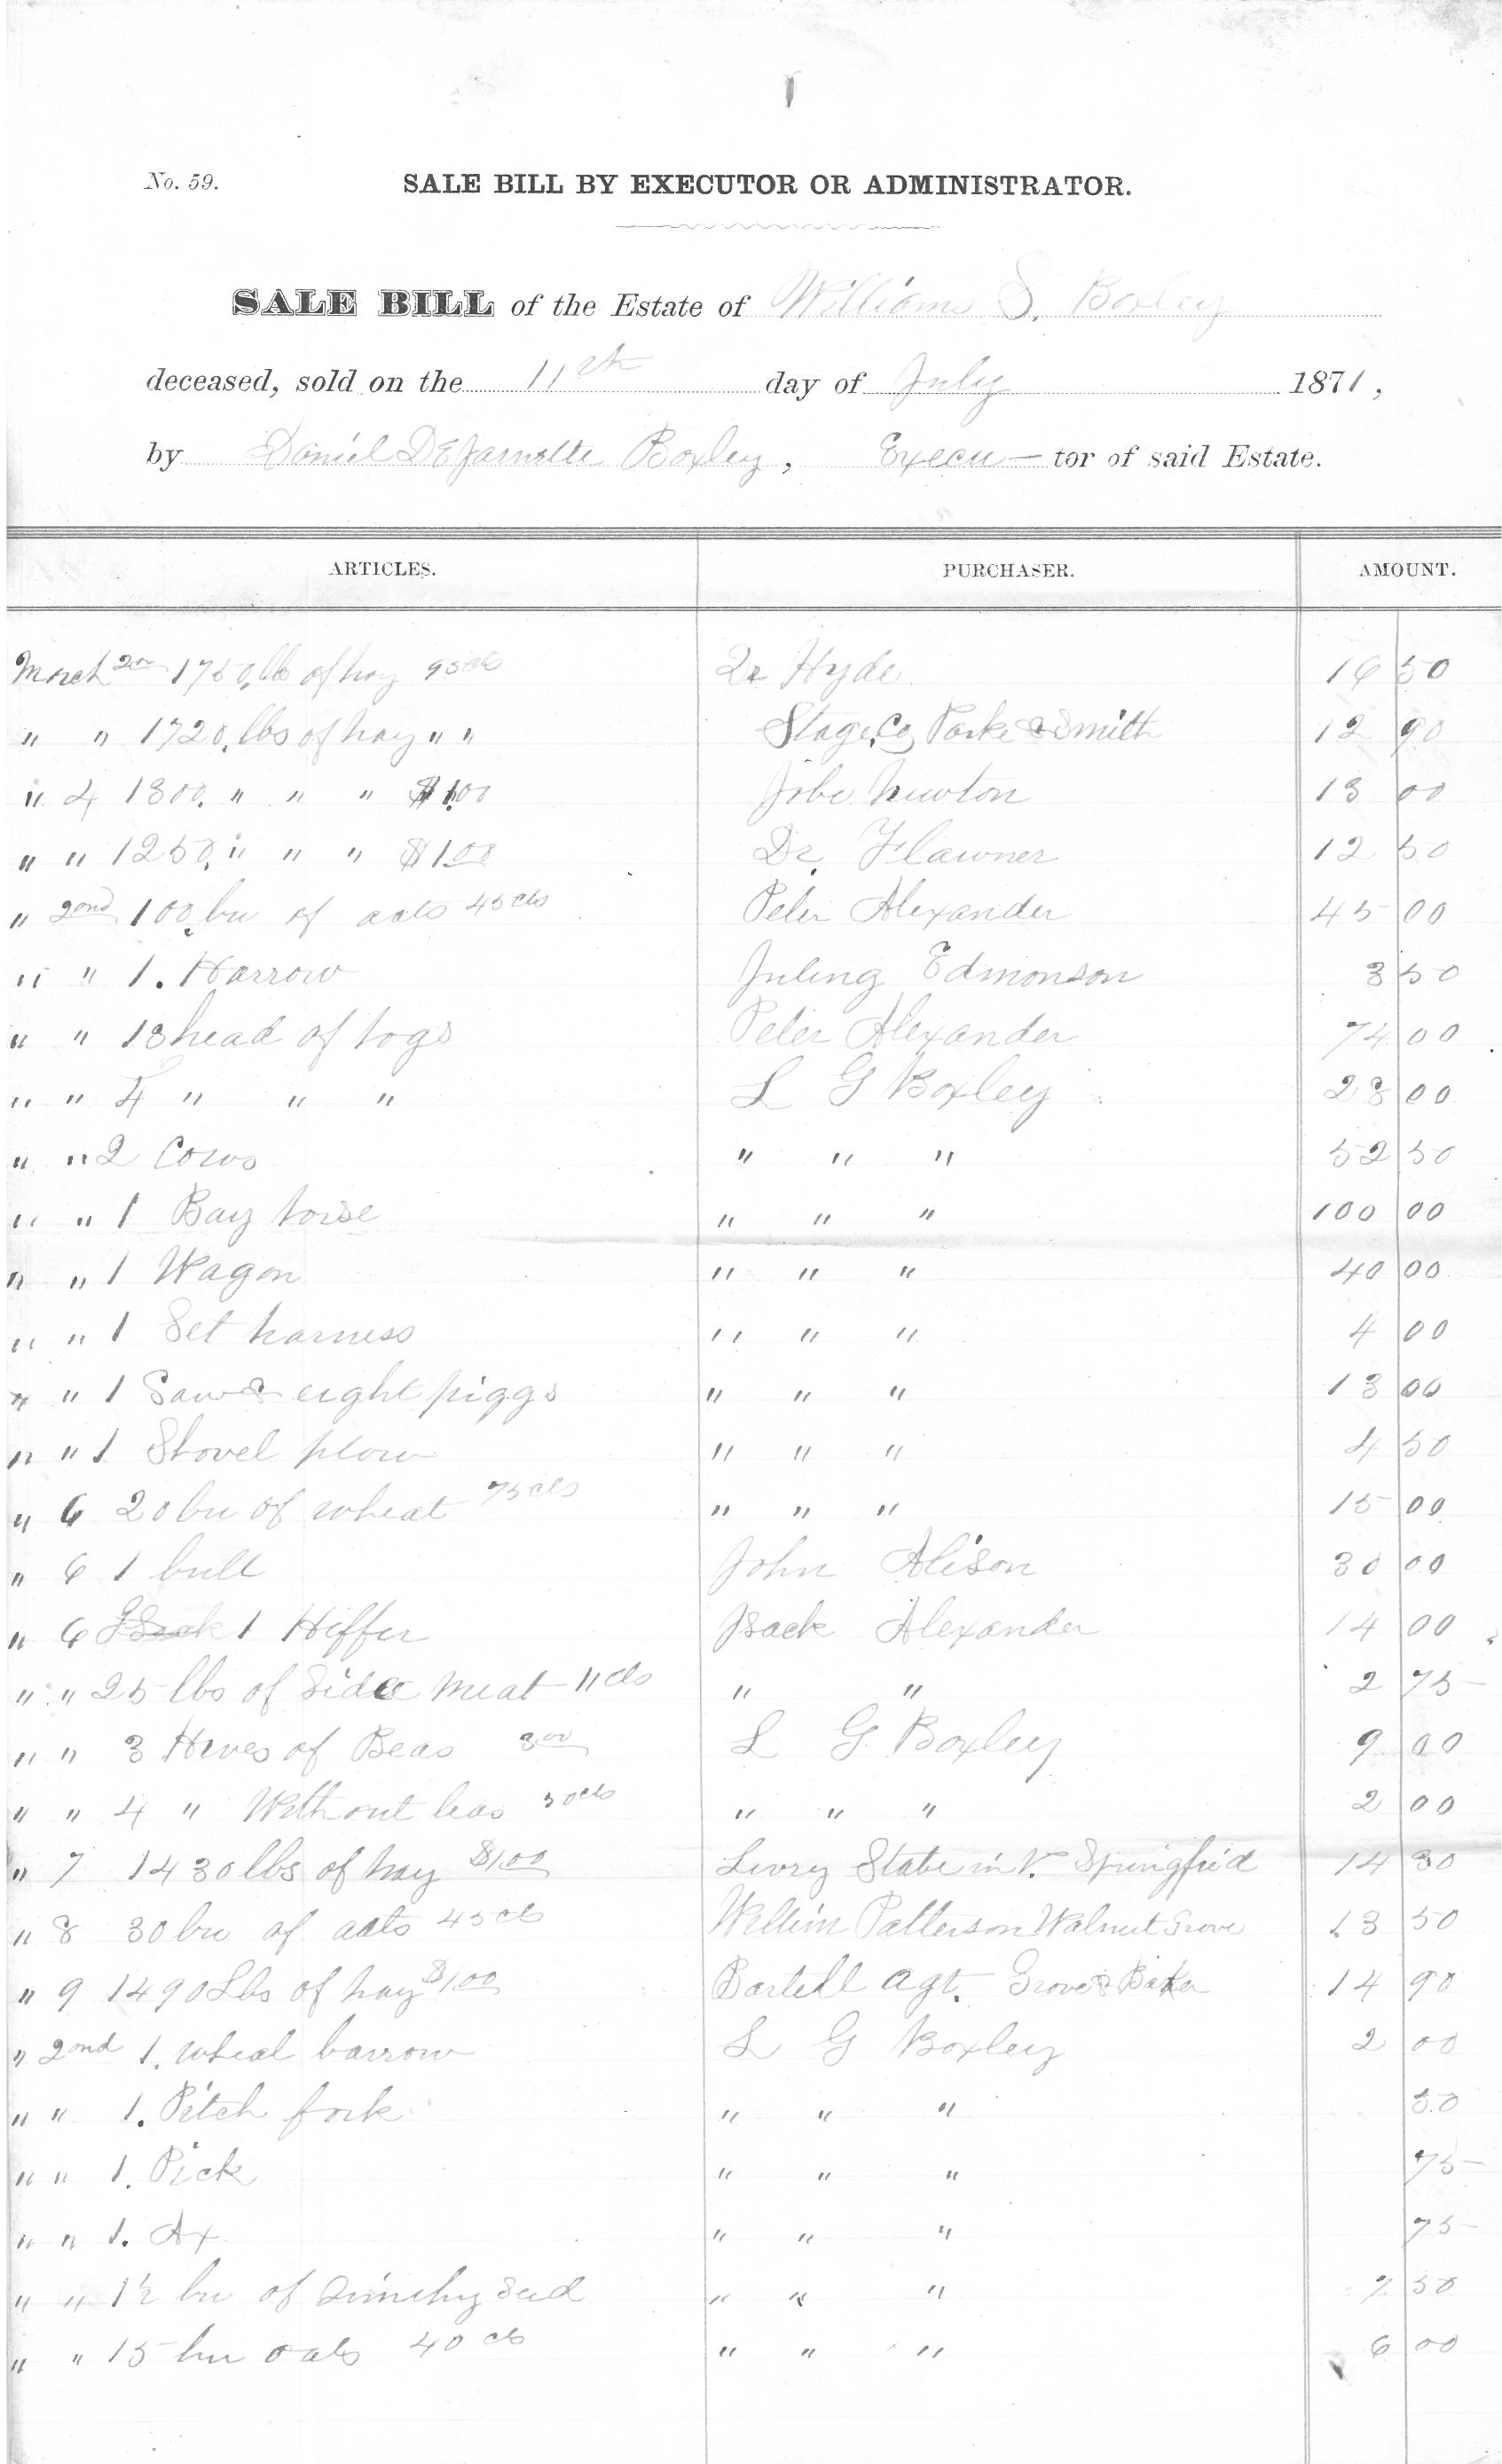 No. 59. SALE BILL BY EXECUTOR OR ADMINISTRATOR.
SALE BILL of the Estate of William S. Boxley
deceased, sold on the 11th day of July 1871,
by Daniel DeJarnette Boxley, Execu- tor of said Estate.
ARTICLES. PURCHASER. AMOUNT.
March 2nd 1750 lbs of hay 95cts Dr Hyde 16 50
" " 1720 lbs of hay " " Stage Co Parke & Smith 12 90
" 4 1300 " " " $1.00 Jobe Newton 13 00
" " 1250 " " " $1.00 Dr. Flawner 12 50
" 2nd 100 bu of aats 45cts Peter Alexander 45 00
" " 1. Harrow Edmonson 3 50
" " 13 head of hogs Peter Alexander 74 00
" " 4 " " " L G Boxley 28 00
" " 2 Cows " " " 52 50
" " 1 Bay horse " " " 100 00
" " 1 Wagon " " " 40 00
" " 1 Set harness " " " 4 00
" " 1 Saw & eight piggs " " " 13 00
" " 1 Shovel plow " " " 4 50
" 6 20 bu of wheat 75cts " " " 15 00
" 6 1 bull John Alison 30 00
" 6 1 Hiffer Jsack Alexander 14 00
" " 25 lbs of Side meat 11cts " " 2 75
" " 3 Hives of Beas 3.00 L G Boxley 9 00
" " 4 " Without beas 50cts " " " 2 00
" 7 1430 lbs of hay $1.00 Livry Stabe in N. Springfied 14 30
" 8 30 bu of aats 45cts Willim Patterson Walnut Grove 13 50
" 9 1490 Lbs of hay $1.00 Bartell Agt. Grove & Baker 14 90
" 2nd 1. wheal barrow L G Boxley 2 00
" " 1. Pitch fork " " " 50
" " 1. Pick " " " 75
" " 1. Ax " " " 75
" " 1½ bu of Timthy Sed " " " 7 50
" " 15 bu oats 40 cts " " " 6 00